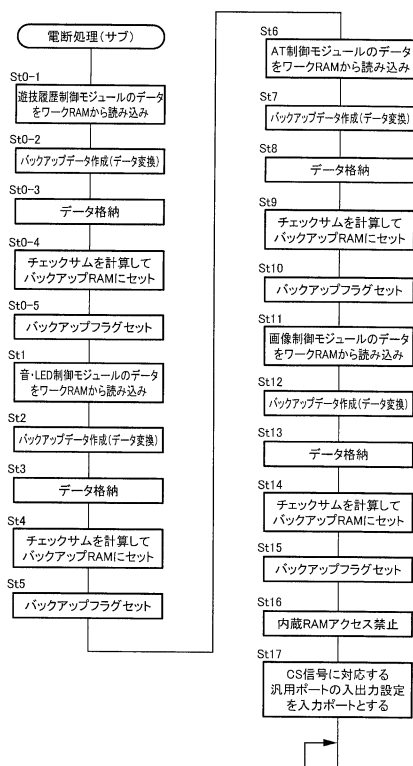 電断処理(サブ)
St0-1
遊技履歴制御モジュールのデータ
をワークRAMから読み込み
St0-2
バックアップデータ作成(データ変換)
St0-3
データ格納
St0-4
チェックサムを計算して
バックアップRAMにセット
St0-5
バックアップフラグセット
St1
音・LED制御モジュールのデータ
をワークRAMから読み込み
St2
バックアップデータ作成(データ変換)
St3
データ格納
St4
チェックサムを計算して
バックアップRAMにセット
St5
バックアップフラグセット
St6
AT制御モジュールのデータ
をワークRAMから読み込み
St7
バックアップデータ作成(データ変換)
St8
データ格納
St9
チェックサムを計算して
バックアップRAMにセット
St10
バックアップフラグセット
St11
画像制御モジュールのデータ
をワークRAMから読み込み
St12
バックアップデータ作成(データ変換)
St13
データ格納
St14
チェックサムを計算して
バックアップRAMにセット
St15
バックアップフラグセット
St16
内蔵RAMアクセス禁止
St17
CS信号に対応する
汎用ポートの入出力設定
を入力ポートとする